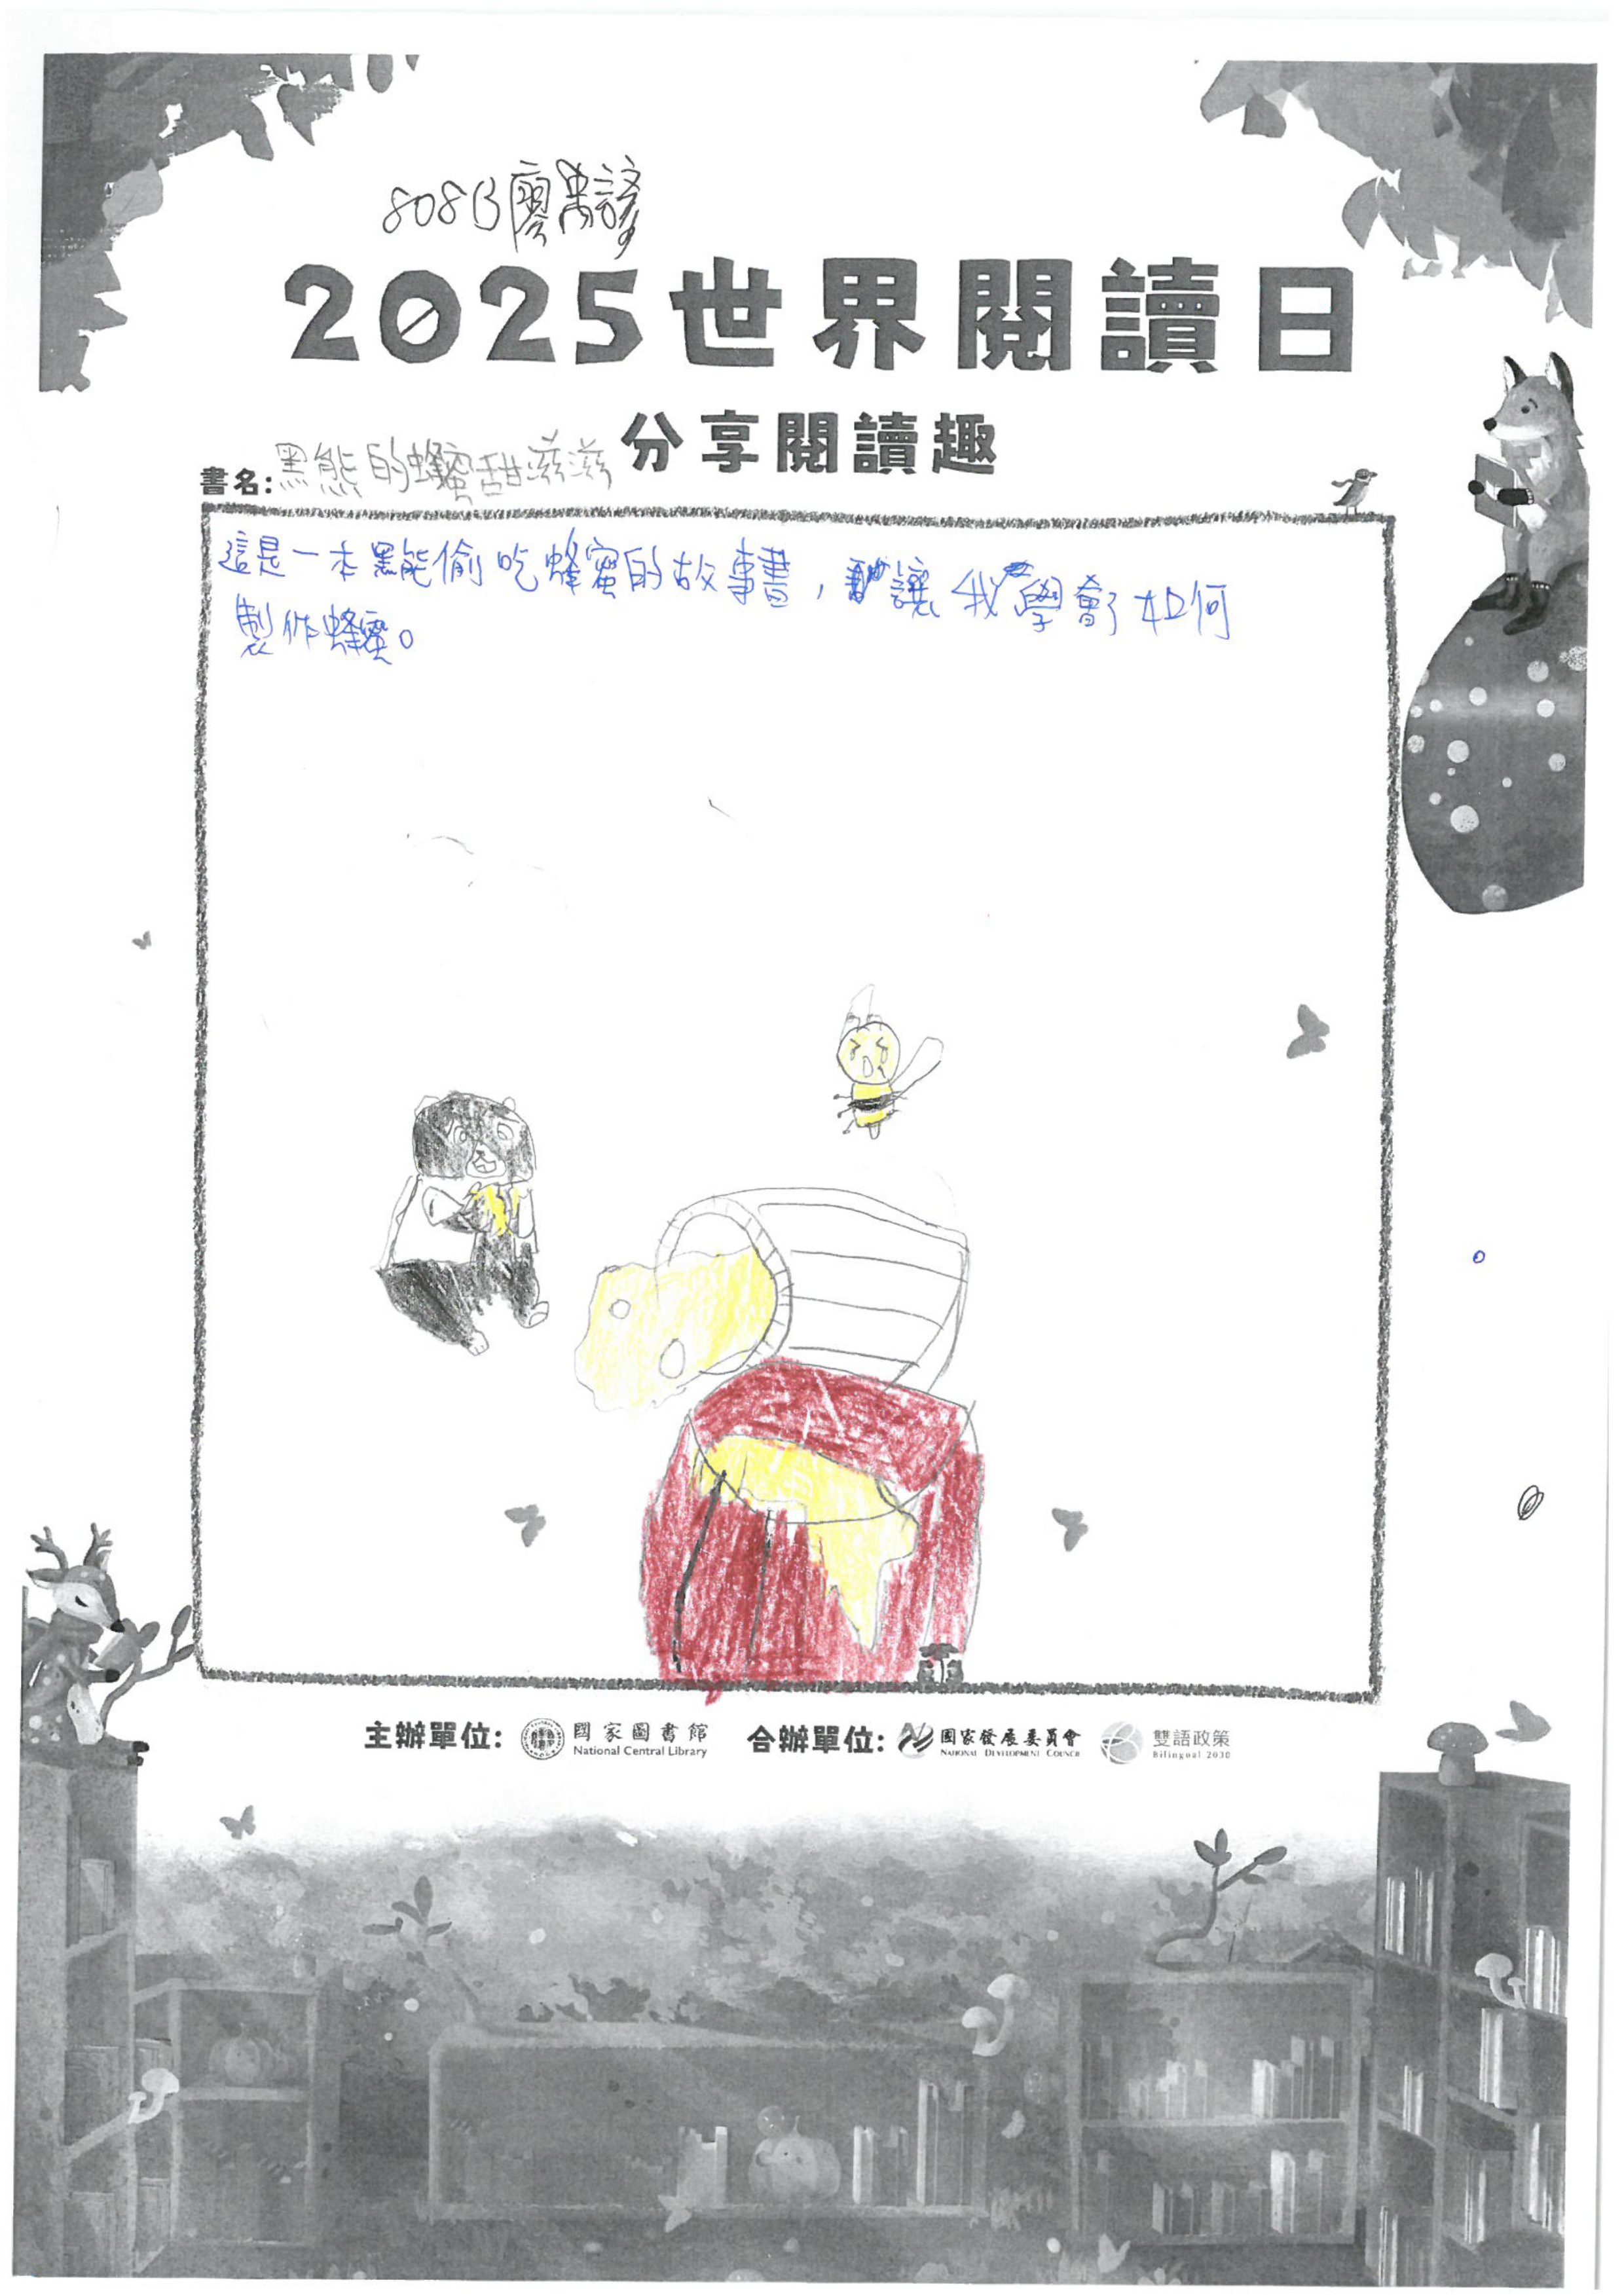 808B 廖禹諺
2025世界閱讀日
分享閱讀趣
書名:黑熊的蜂蜜甜滋滋
這是一本黑能偷吃蜂蜜的故事書,讓我學會了如何
製作蜂蜜。
主辦單位: 國家圖書館 合辦單位: 國家發展委員會 雙語政策
National Central Library NATIONAL DEVELOPMENT COUNCIL Bilingual 2030